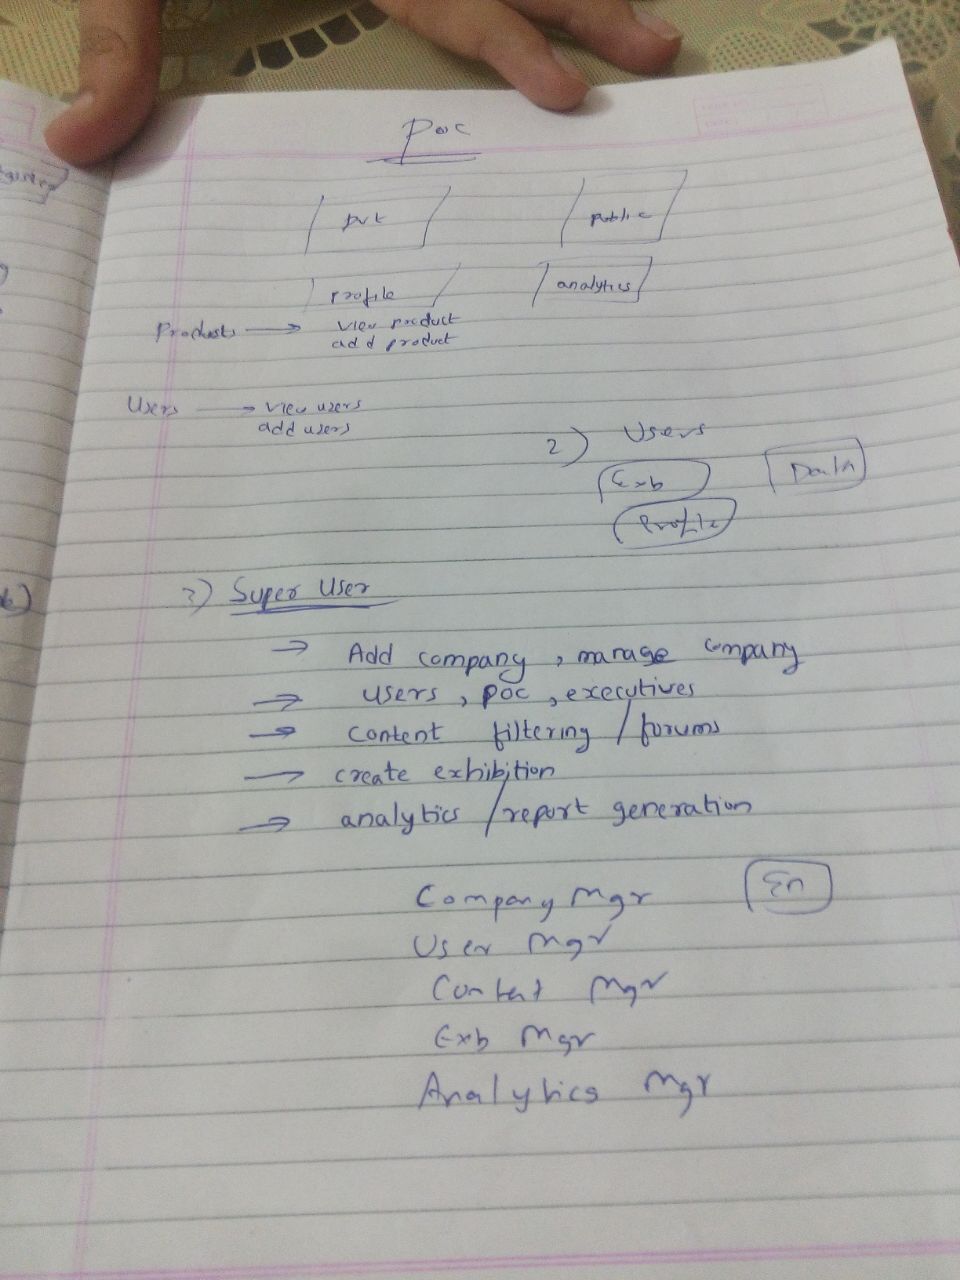 Poc
pvt public
profile analytics
Products → view product
add product
Users → view users
add users
2) Users
Exb
Profile
3) Super User
→ Add company, manage company
→ users, poc, executives
→ content filtering / forums
→ create exhibition
→ analytics / report generation
Company Mgr En
User Mgr
Content Mgr
Exb Mgr
Analytics Mgr